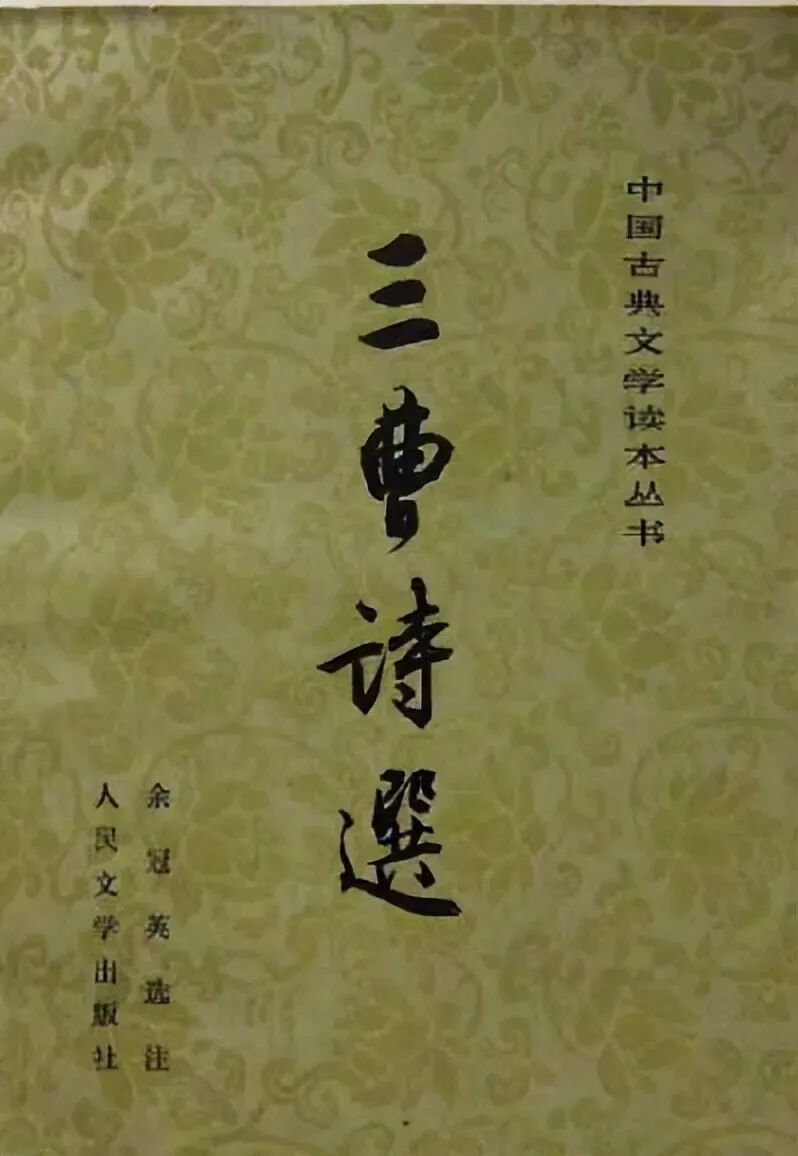 中国古典文学读本丛书
三曹诗選
余冠英选注
人民文学出版社